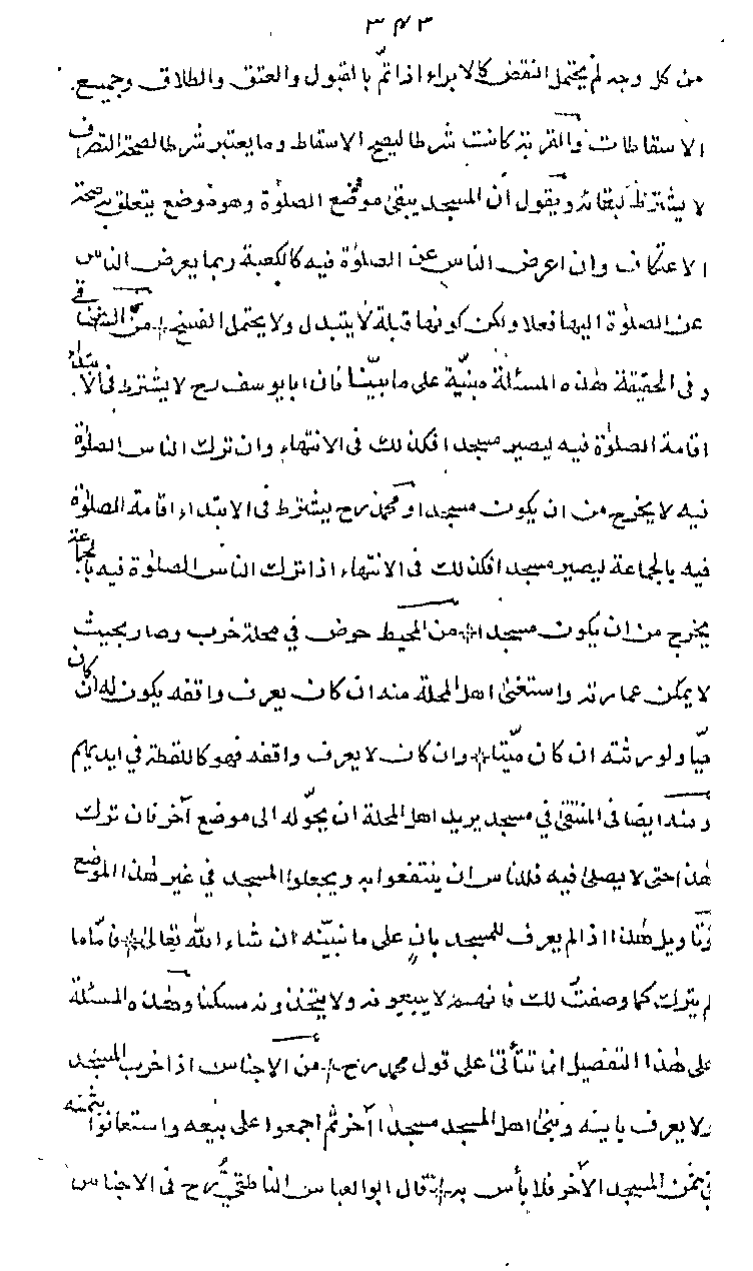 ٣٤٣
من كل وجه لم يحتمل النقض كالابراء اذا تمّ بالقبول والعتق والطلاق وجميع
الاسقاطات والقربة كانت شرطا ليصح الاسقاط وما يعتبر شرطا لصحة التصرف
لا يشترط لبقائه ويقول ان المسجد يبقى موضع الصلوة وهو موضع يتعلق به صحة
الاعتكاف وان اعرض الناس عن الصلوة فيه كالكعبة ربما يعرض الناس
عن الصلوة اليها فعلا ولكن كونها قبلة لا يتبدل ولا يحتمل الفسخ من
وفى الحقيقة هذه المسئلة مبنيّة على ما بيّنا فان ابا يوسف رح لا يشترط فى الابتداء
اقامة الصلوة فيه ليصير مسجدا فكذلك فى الانتهاء وان ترك الناس الصلوة
فيه لا يخرج من ان يكون مسجدا ومحمد رح يشترط فى الابتداء اقامة الصلوة
فيه بالجماعة ليصير مسجدا فكذلك فى الانتهاء اذا ترك الناس الصلوة فيه بالجماعة
يخرج من ان يكون مسجدا من المحيط حوض في محلة خرب وصار بحيث
لا يمكن عمارته واستغنى اهل المحلة منه ان كان يعرف واقفه يكون له ان كان
حيّا ولورثته ان كان ميّتا وان كان لا يعرف واقفه فهو كاللقطة في ايديهم
ومنه ايضا فى المنتقى في مسجد يريد اهل المحلة ان يحوّله الى موضع آخر فان ترك
هذا حتى لا يصلى فيه فللناس ان ينتفعوا به ويجعلوا المسجد في غير هذا الموضع
وتاويل هذا اذا لم يعرف للمسجد بانٍ على ما نبيّنه ان شاء الله تعالى فامّا ما
لم يترك كما وصفت لك فانهم لا يبيعونه ولا يتخذونه مسكنا وهذه المسئلة
على هذا التفصيل انما تتأتى على قول محمد رح من الاجناس اذا خرب المسجد
ولا يعرف بانيه وبنى اهل المسجد مسجدا آخر ثم اجمعوا على بيعه واستعانوا بثمنه
في ثمن المسجد الآخر فلا بأس به قال ابو العباس الناطفي رح فى الاجناس